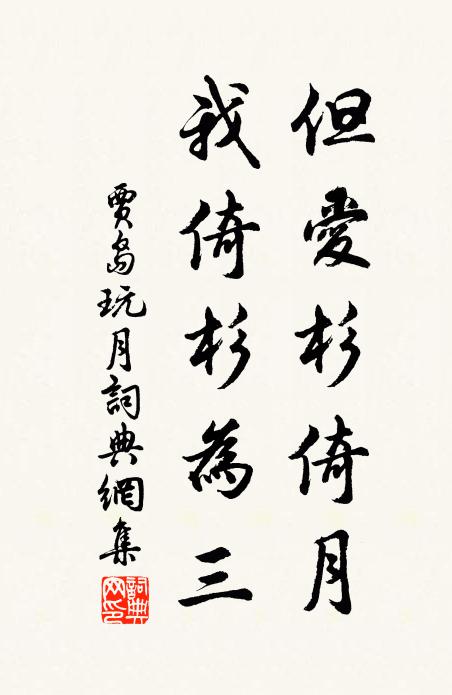 但愛杉倚月
我倚杉為三
賈島玩月詞典網集
詞典
网印